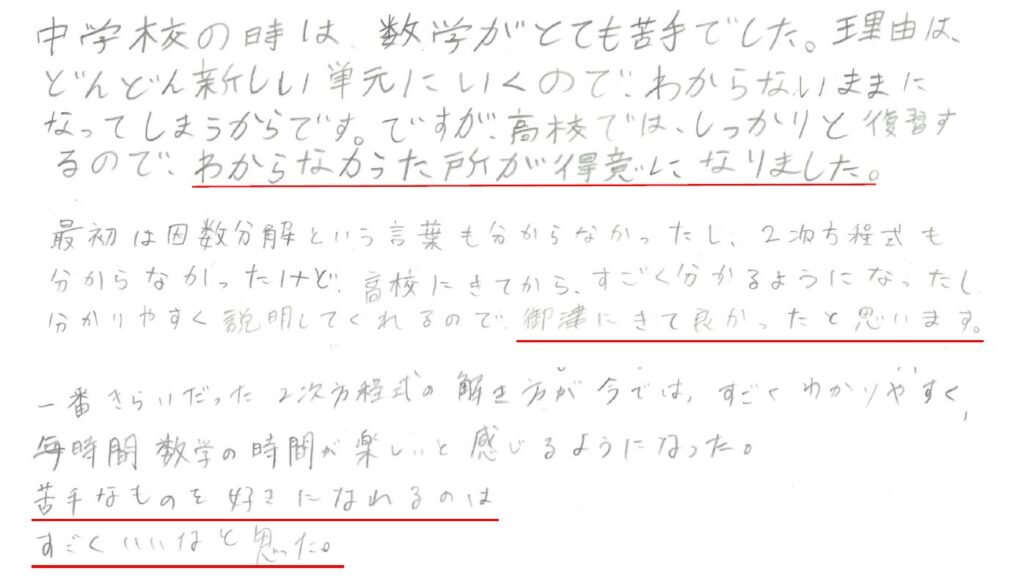 中学校の時は、数学がとても苦手でした。理由は、
どんどん新しい単元にいくので、わからないままに
なってしまうからです。ですが、高校では、しっかりと復習す
るので、わからなかった所が得意になりました。
最初は因数分解という言葉も分からなかったし、2次方程式も
分からなかったけど、高校にきてから、すごく分かるようになったし
分かりやすく説明してくれるので、御津にきて良かったと思います。
一番きらいだった2次方程式の解き方が今では、すごくわかりやすく、
毎時間数学の時間が楽しいと感じるようになった。
苦手なものを好きになれるのは
すごくいいなと思った。